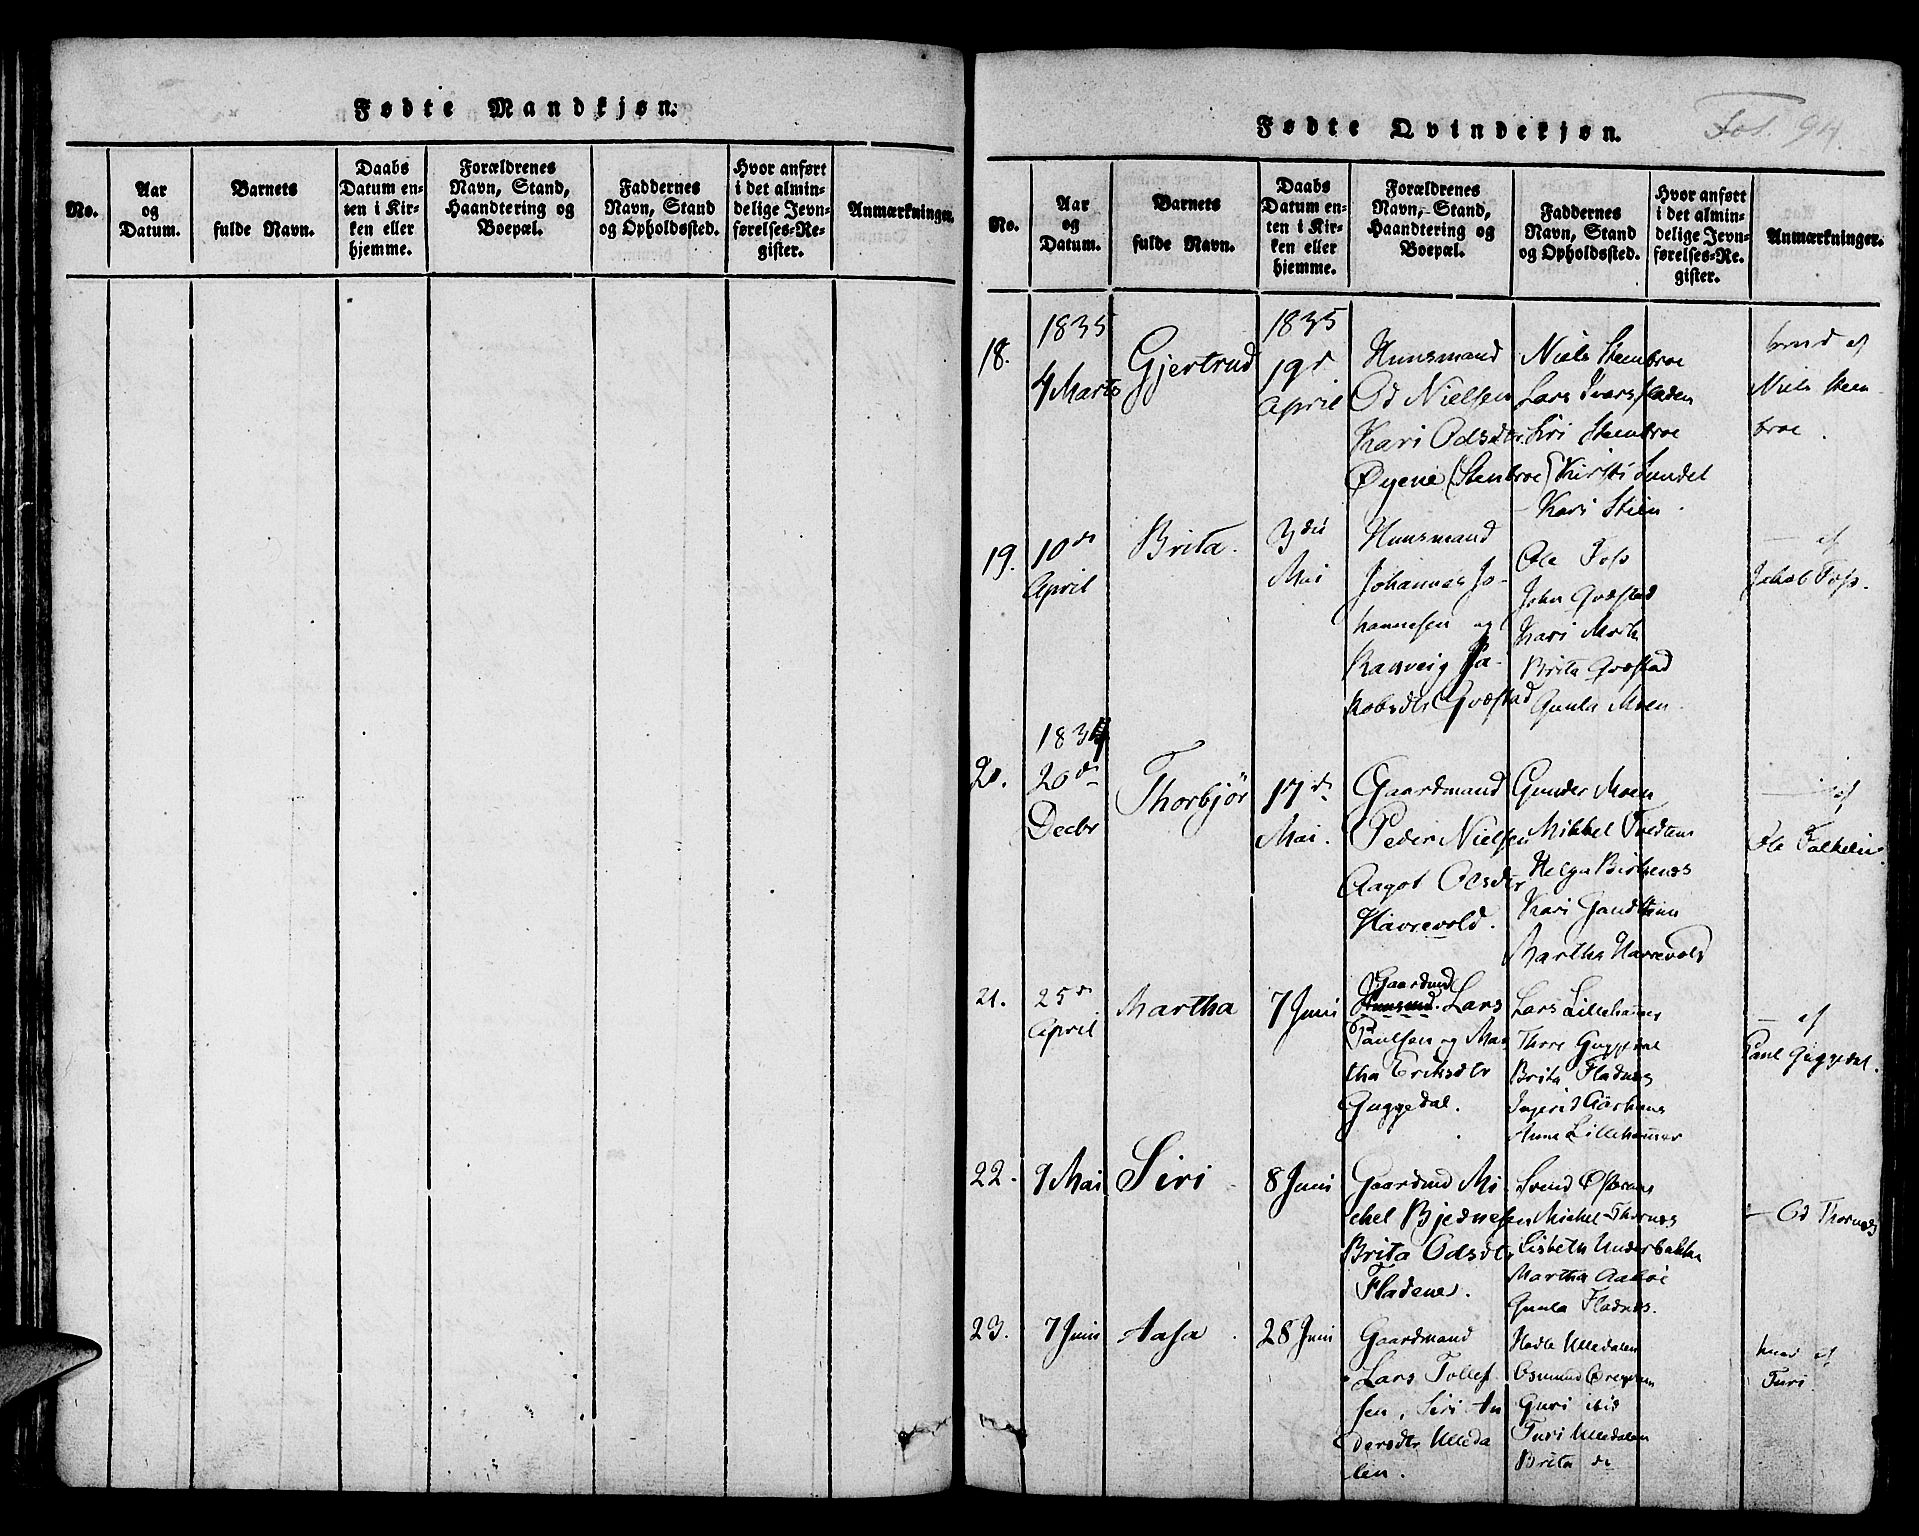 Fødte Mandkjøn.
No.
Aar
og
Datum.
Barnets
fulde Navn.
Daabs
Datum en-
ten i Kir-
ken eller
hjemme.
Forældrenes
Navn, Stand,
Haandtering og
Boepæl.
Faddernes
Navn, Stand
og Opholdssted.
Hvor anført
i det almin-
delige Jevn-
førelses-Re-
gister.
Anmærkninger.
Fødte Qvindekjøn.
Fol. 94.
No.
Aar
og
Datum.
Barnets
fulde Navn.
Daabs
Datum en-
ten i Kir-
ken eller
hjemme.
Forældrenes
Navn, Stand,
Haandtering og
Boepæl.
Faddernes
Navn, Stand
og Opholdssted.
Hvor anført
i det almin-
delige Jevn-
førelses-Re-
gister.
Anmærkninger.
18.
1835
4 Marts
Gjertrud
1835
19de
April
Huusmand
Od Nielsen
Kari Odsdtr
Øyene (Stenbroe)
Niels Steenbroe
Lars Iversfladen
Siri Steenbroe
Kirsti Lundet
Kari Stien.
hmd af
Niels Steen-
broe.
19.
10de
April
Brita.
3die
Mai
Huusmand
Johannes Jo-
hannesen og
Ranveig Ja-
kobsdtr Qvæstad
Ole Foss
John Qvæstad
Kari Moth
Brita Qvæstad
Gunla Moen.
— af
Jakob Foss.
20.
1834
20de
Decbr
Thorbjør
17de
Mai.
Gaardmand
Peder Nielsen
Aagot Olsdtr
Havrevold.
Gunder Moen
Mikkel Tvedten
Helga Birkenes
Kari Gandthun
Martha Havrevold
— af
Ole Falkeli.
21.
25de
April
Martha
7 Juni
Gaardmd
Huusmd. Lars
Paulsen og Mar
tha Eriksdtr
Guggedal.
Lars Lillehammer
Thore Guggedal
Brita Fladnes
Ingerid Aarhuus
Anna Lillehammer
— af
Paul Guggedal.
22.
9 Mai
Siri
8 Juni
Gaardmd Mi-
chel Bjednesen
Brita Odsdtr
Fladene.
Svend Østerenæs
Michel Thornæs
Lisbeth Underbakke
Martha Aaboe
Gunla Fladnes.
— Od Thornæs
23.
7 Juni
Aasa.
28 Juni
Gaardmand
Lars Tollef-
sen, Siri An
dersdtr Ulleda
len.
Hadle Ulledalen
Osmund
Guri ibid
Turi Ulledalen
Brita do
hmd af
Turi.